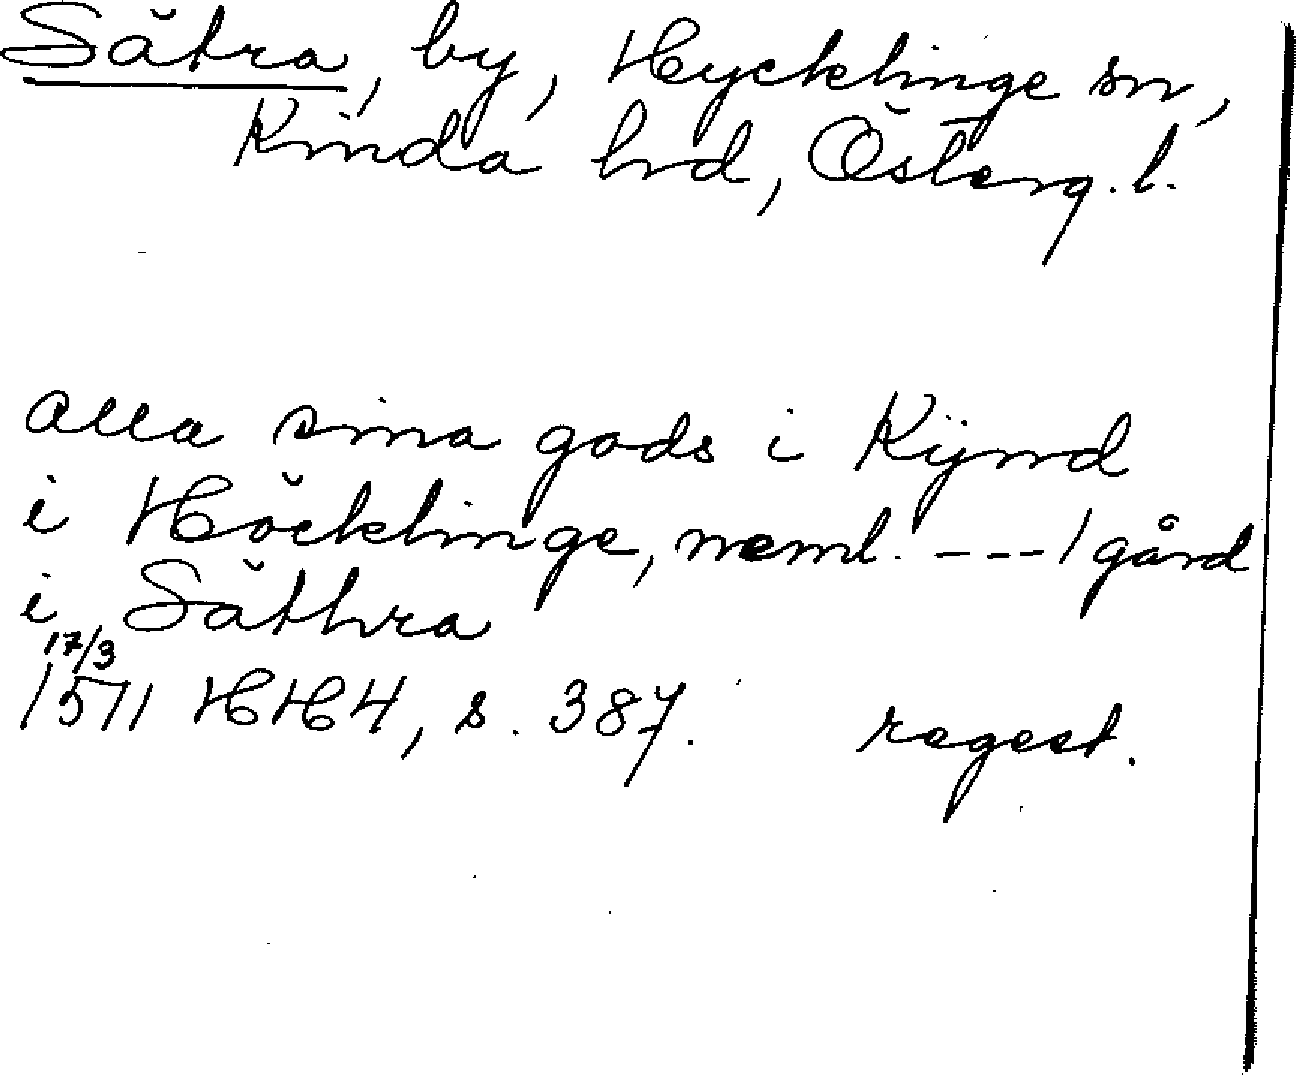 Sätra, by, Hycklinge sn,
Kinda hrd, Österg. l.
alla sina gods i Kijnd
i Höcklinge, neml. --- 1 gård
i Säthra
17/3
1511 HH4, s. 387. regest.